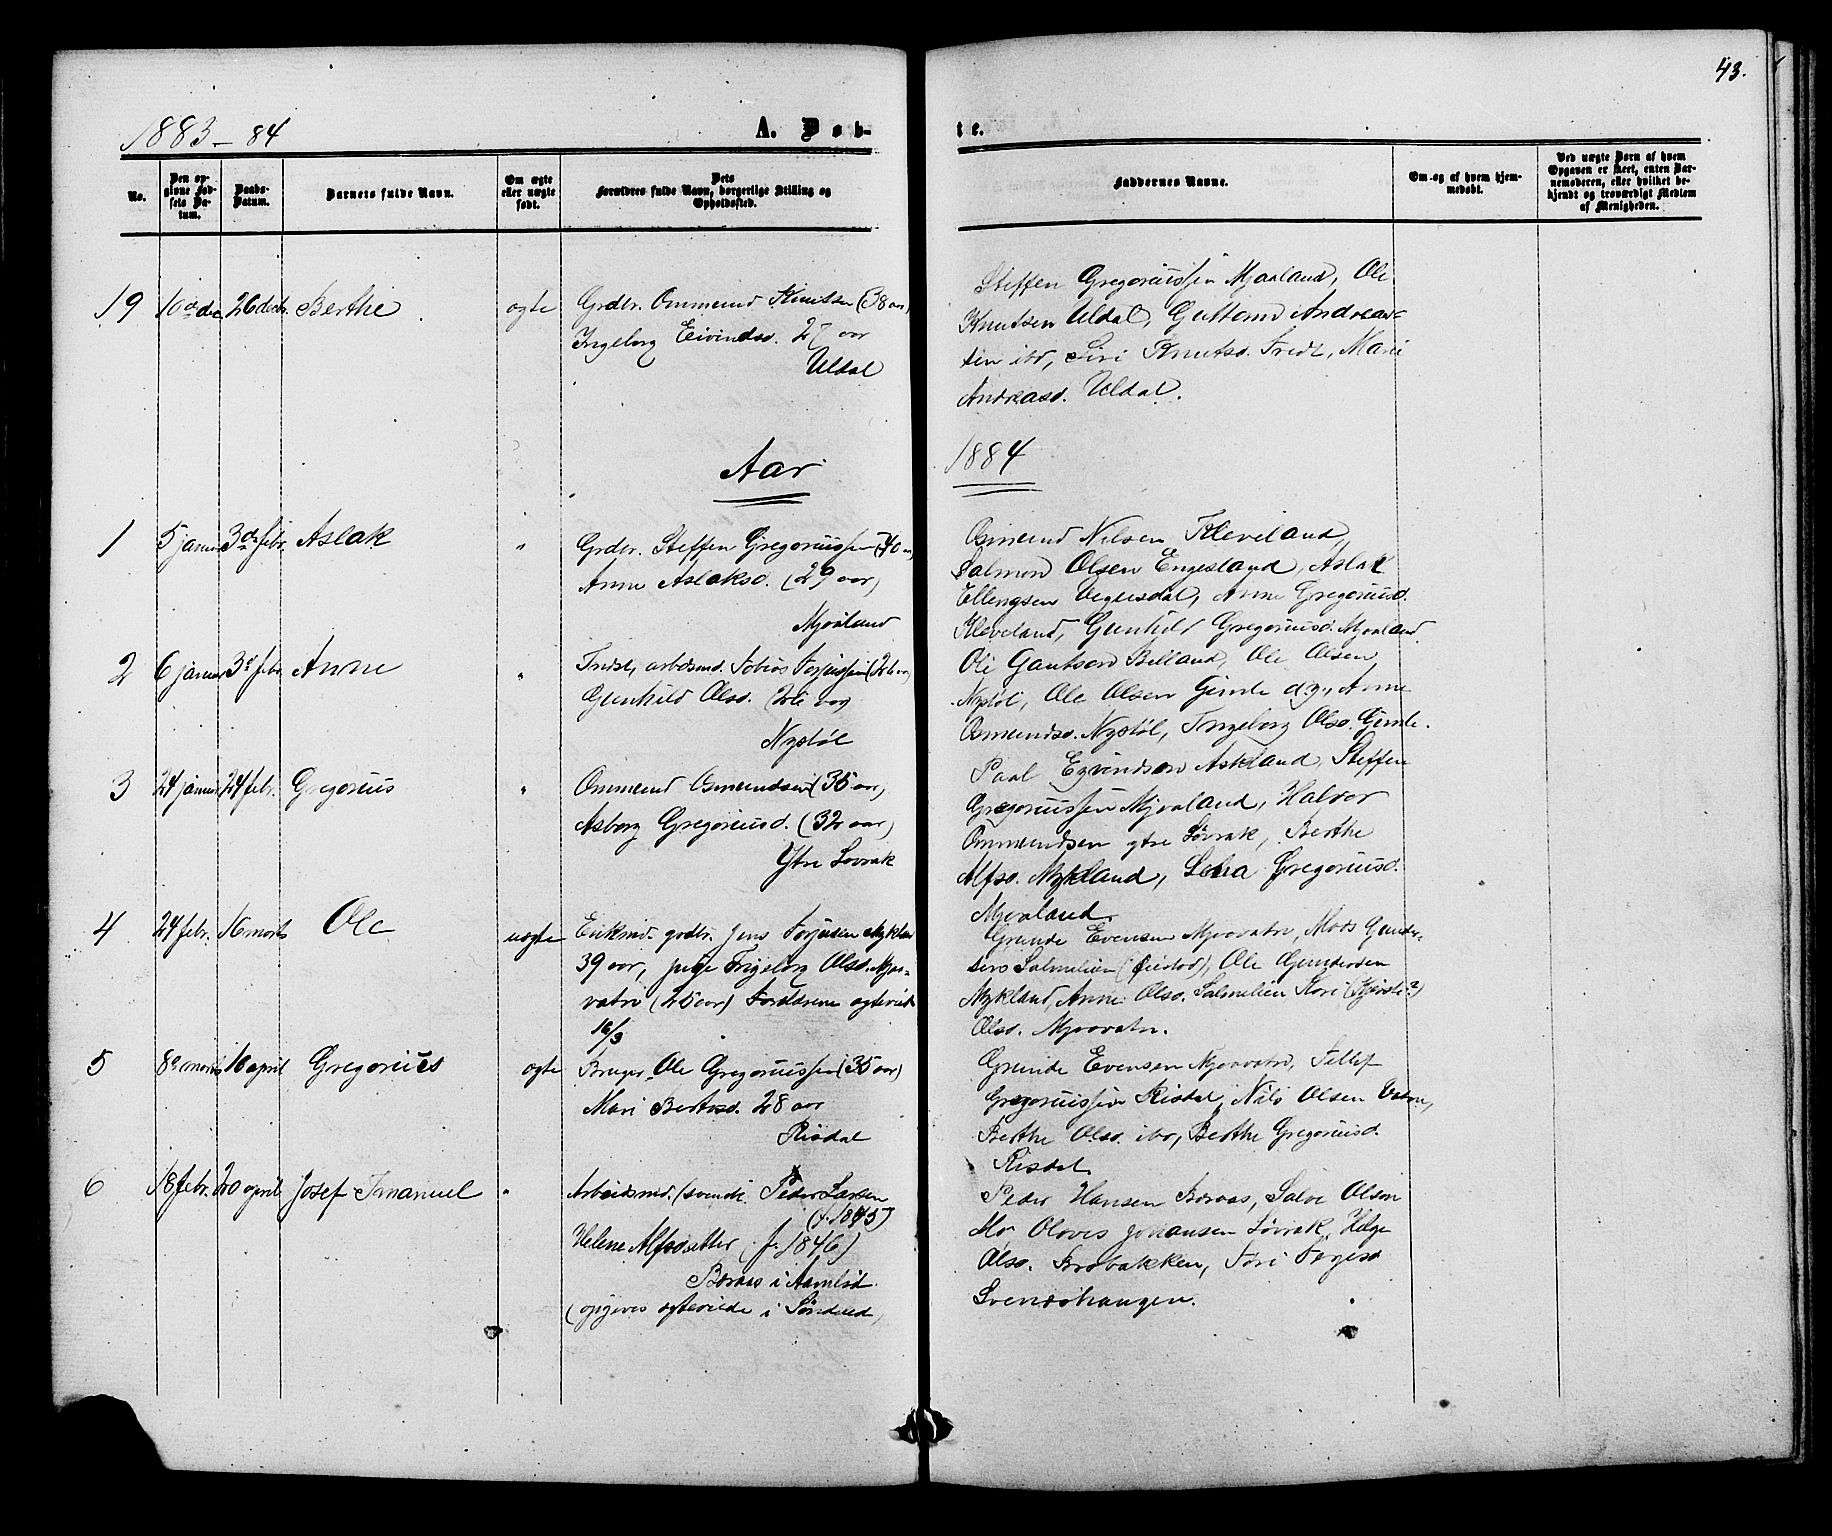 43.
1883-84
A. Døb-
te.
No.
Den op-
givne Fød-
sels Da-
tum.
Daabs-
Datum.
Barnets fulde Navn.
Om ægte
eller uægte
født.
Dets
Forældres fulde Navn, borgerlige Stilling og
Opholdssted.
Faddernes Navne.
Om og af hvem hjem-
medøbt.
Ved uægte Børn af hvem
Opgaven er skeet, enten Bar-
nemoderen, eller hvilket be-
kjendt og troværdigt Medlem
af Menigheden.
19 10de dec 26 decbr. Berthe ægte
Grdbr. Ommund Knutsen (38 aar)
Ingeborg Eivindsd. 27 aar
Uldal
Steffen Gregoriussen Mjaaland, Ole
Knutsen Uldal, Guttorm Andreas-
sen ibd, Siri Knutsd. Tredt, Marie
Andreasd. Uldal.
Aar
1884
1 5 januar 3de febr. Aslak "
Grdbr. Steffen Gregoriussen (40 aar)
Anne Aslaksd. (29 aar)
Mjaaland
Osmund Nilsen Kleveland,
Salmon Olsen Engesland, Aslak
Ellingsen Vegusdal, Anne Gregoriusd.
Kleveland, Gunhild Gregoriusd. Mjaaland.
2 6 januar 3d febr. Anne "
Indst, arbeidsmd. Tobias Terjussen (26 aar)
Gunhild Olsd. (26 aar)
Nystøl
Ole Gautson Belland, Ole Olsen
Nystøl, Ole Olsen Gimle d.y., Anne
Osmundsd. Nystøl, Ingeborg Olsd. Gimle.
3 24 januar 24 febr. Gregorius "
Ommund Osmundsen (35 aar)
Asborg Gregoriusd. (32 aar)
Ytre Løvrak
Paal Eyvindsen Askland, Steffen
Gregoriussen Mjaaland, Halvor
Ommundsen ytre Løvrak, Berthe
Alfsd. Mykland, Lena Gregoriusd.
Mjaaland.
4 24 febr. 16 marts Ole uægte
Enkemd. grdbr. Jens Terjusen Mykland
39 aar, pige Ingeborg Olsd. Mjaa-
vatn (25 aar) Forældrene ægteviede
16/3
Grunde Evensen Mjaavatn, Mads Gunder-
sen Salmelien (Gjerstad), Ole Gundersen
Mykland, Anne Olsd. Salmelien Kari (Kjersti?)
Olsd. Mjaavatn.
5 8de marts 10 april Gregorius ægte
Bruger Ole Gregoriussen (35 aar)
Mari Bertesd. 28 aar
Risdal
Grunde Evensen Mjaavatn, Tellef
Gregoriussen Risdal, Nils Olsen Vatne,
Berthe Olsd. ibd, Berthe Gregoriusd.
Risdal
6 18 febr. 20 april Josef Imanuel "
Arbeidsmd. (svensk. Peder Larsen
(f. 1845)
Helene Alfsdatter (f. 1846)
Baraas i Aamlid
(opgives ægteviede i Søndeled)
Peder Hansen Baraas, Salve Olsen
Mo, Olovis Johansen Løvrak, Helge
Olsd. Brobakken, Tori Terjesd
Svendshaugen.